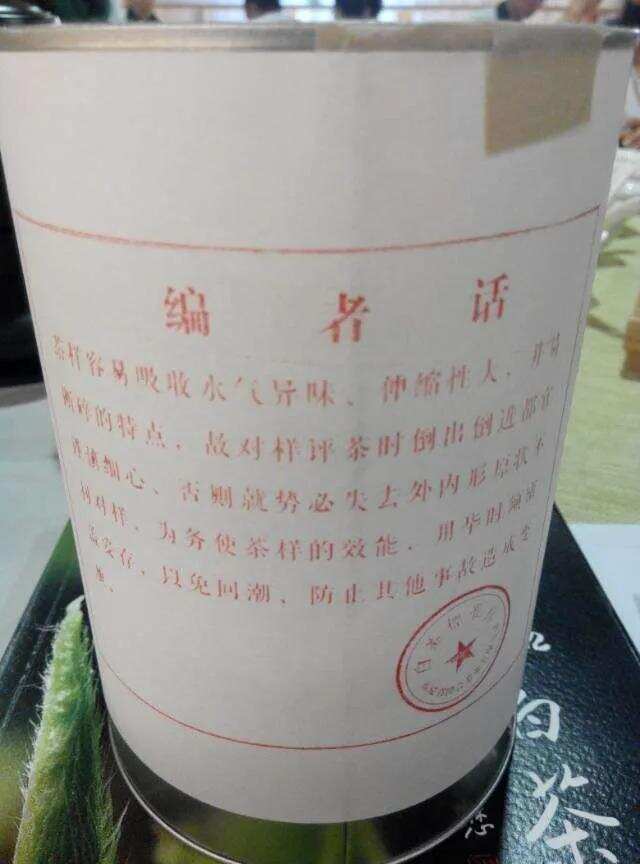 编者话
茶样容易吸收水气异味、伸缩性大、并易
断碎的特点，故对样评茶时倒出倒进都宜
谨慎细心、否则就势必失去外内形原状不
对样、为务使茶样的效能、用毕时须
妥存，以免回潮、防止其他事故造成变
白茶